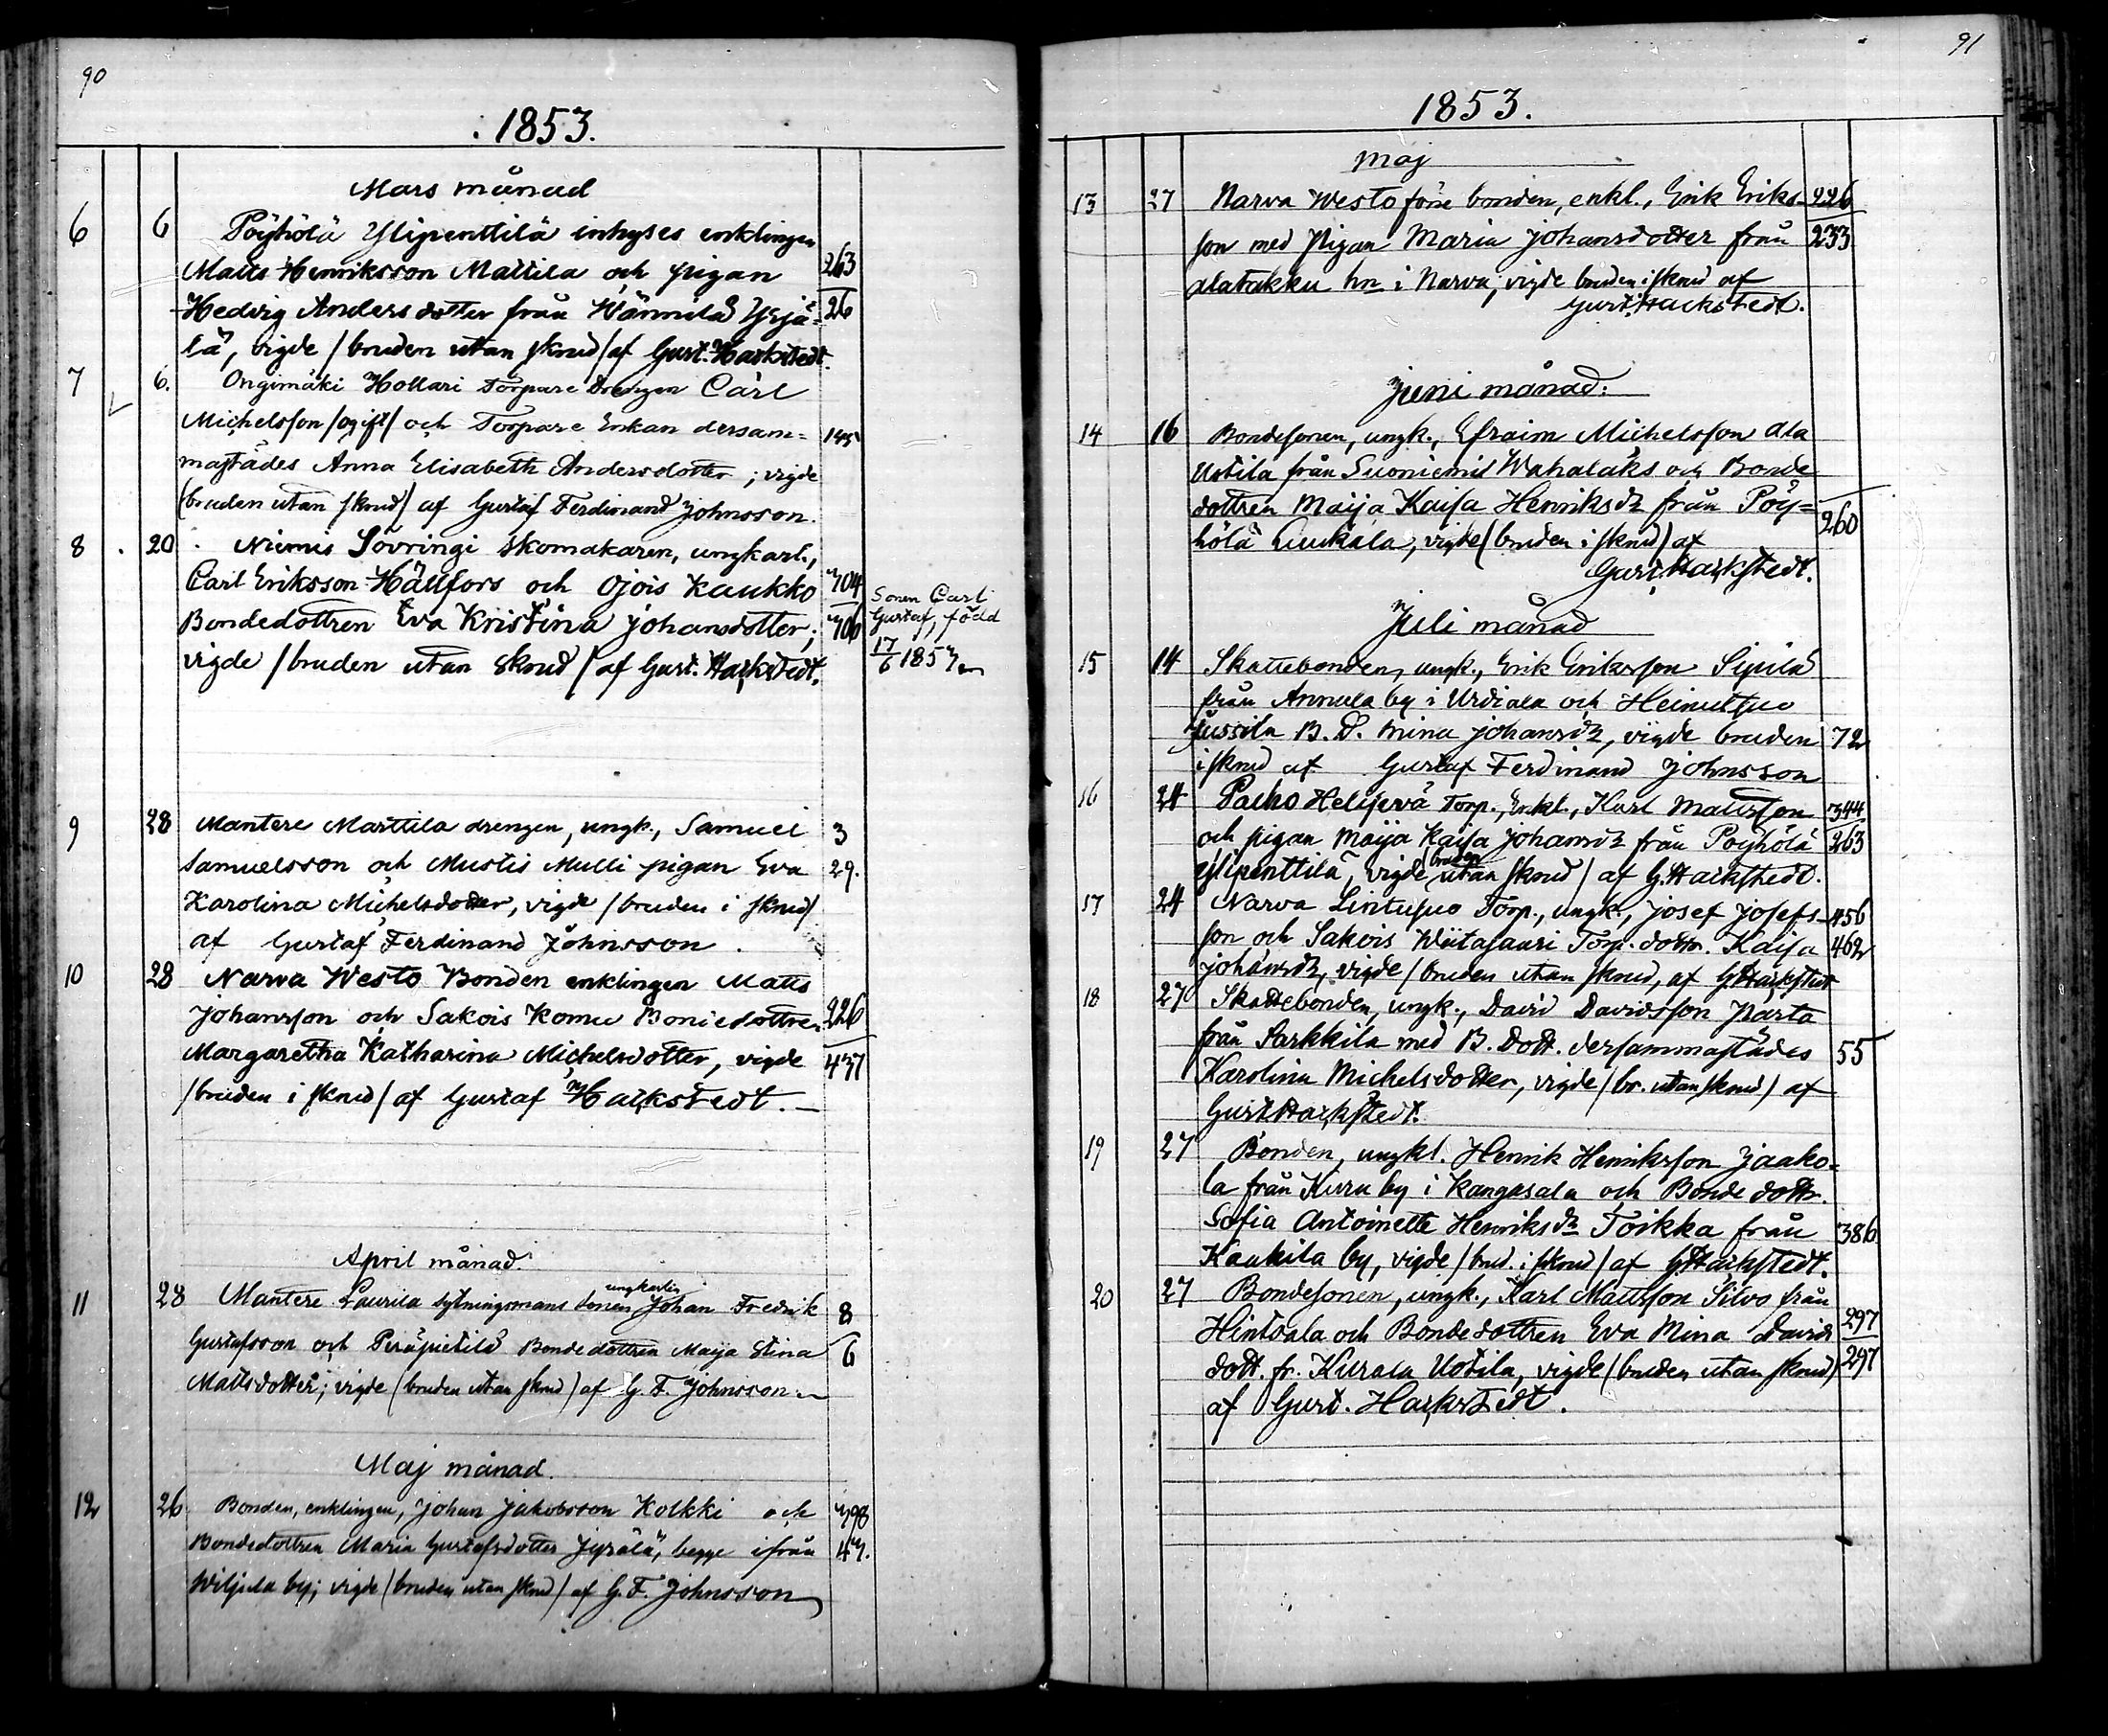 90
1853.
Mars månad
6 6 Pöyhölä Ylipenttilä inhyses enklingen
Matts Henriksson Mattila och pigan 263
Hedvig Andersdotter från Wännilä Yrjä= 26
lä, vigde /bruden utan skrud/ af Gust. Hackstedt.
7 6. Ongimäki Hollari Torpare Drengen Carl
Michelsson /ogift/ och Torpare Enkan dersam= 145
mastädes Anna Elisabeth Andersdotter; vigde
(bruden utan skrud) af Gustaf Ferdinand Johnsson.
8 20 Niemis Sövringi Skomakaren, ungkarl.,
Carl Eriksson Hällfors och Ojois Kaukko 304
Bondedottren Eva Kristina Johansdotter; 306
vigde /bruden utan skrud/ af Gust. Hackstedt.
Sonen Carl
Gustaf, född
17/6 1853
9 28 Mantere Marttila drengen, ungk., Samuel 3
Samuelsson och Mustis Mulli pigan Eva 29.
Karolina Michelsdotter, vigde /bruden i skrud/
af Gustaf Ferdinand Johnsson.
10 28 Narva Westo Bonden enklingen Matts
Johansson och Sakois Komu Bondedottren 226
Margaretha Katharina Michelsdotter, vigde 437
/bruden i skrud/ af Gustaf Hackstedt.
April månad.
11 28 Mantere Laurila Sytningsmans Sonen ungkarlen Johan Fredrik 8
Gustafsson och Peräpietilä Bondedottren Maija Stina 6
Mattsdotter; vigde (bruden utan skrud) af G. F. Johnsson
Maj månad.
12 26 Bonden, enklingen, Johan Jakobsson Kolkki och 398
Bondedottren Maria Gustafsdotter Jyrälä, begge ifrån 43.
Wiljula by; vigde (bruden utan skrud) af G. F. Johnsson
91
1853.
Maj
13 27 Narva Westo före bonden, enkl., Erik Eriks- 226
son med Pigan Maria Johansdotter från 233
Alatakku hn i Narva; vigde bruden i skrud af
Gust. Hackstedt.
Juni månad.
14 16 Bondesonen, ungk., Efraim Michelsson Ala
Uotila från Suoniemis Wahalaks och Bonde
dottren Maija Kaisa Henriksdr från Pöy=
hölä Quukala, vigde (bruden i skrud) af 260
Gust. Hackstedt.
Juli månad
15 14 Skattebonden, ungk., Erik Eriksson Sipilä
från Annula by i Urdiala och Heinusuo
Jussila B. D. Mina Johansdr, vigde bruden 72
i skrud af Gustaf Ferdinand Johnsson
16 24 Palho Helijervä Torp., Enkl., Karl Mattsson 344
och pigan Maija Kaisa Johansdr från Pöyhölä 263
Ylipenttilä, vigde /bruden utan skrud/ af G. Hackstedt.
17 24 Narva Lintusuo Torp., ungk., Josef Josefs- 456
son och Sakois Wiitasaari Torp. dottr. Kaisa 462
Johansdr, vigde /bruden utan skrud, af G Hackstedt
18 27 Skattebonden, ungk., David Davidsson Parta
från Sarkkila med B. Dott. dersammastädes 55
Karolina Michelsdotter, vigde /br. utan skrud/ af
Gust. Hackstedt.
19 27 Bonden, ungkl. Henrik Henriksson Jaako=
la från Kuru by i Kangasala och Bonde dottr.
Sofia Antoinette Henriksdr Toikka från 386
Kaukila by, vigde /brud. i skrud/ af G. Hackstedt.
20 27 Bondesonen, ungk., Karl Mattsson Silvo från
Hintsala och Bondedottren Eva Mina Davids 297
dott. fr. Kurala Uotila, vigde (bruden utan skrud) 297
af Gust. Hackstedt.